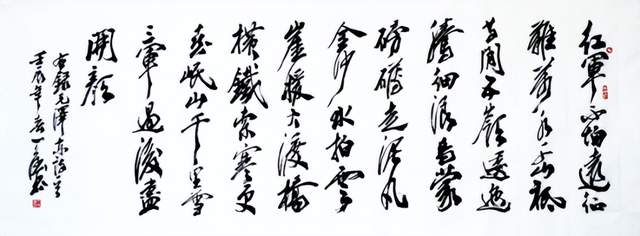 红軍不怕遠征
難萬水千山祇
等閑五嶺逶迤
騰細浪烏蒙
磅礴走泥丸
金沙水拍雲
崖暖大渡橋
橫鐵索寒更
喜岷山千里雪
三軍過後盡
開顏
右録毛澤东詩
年春